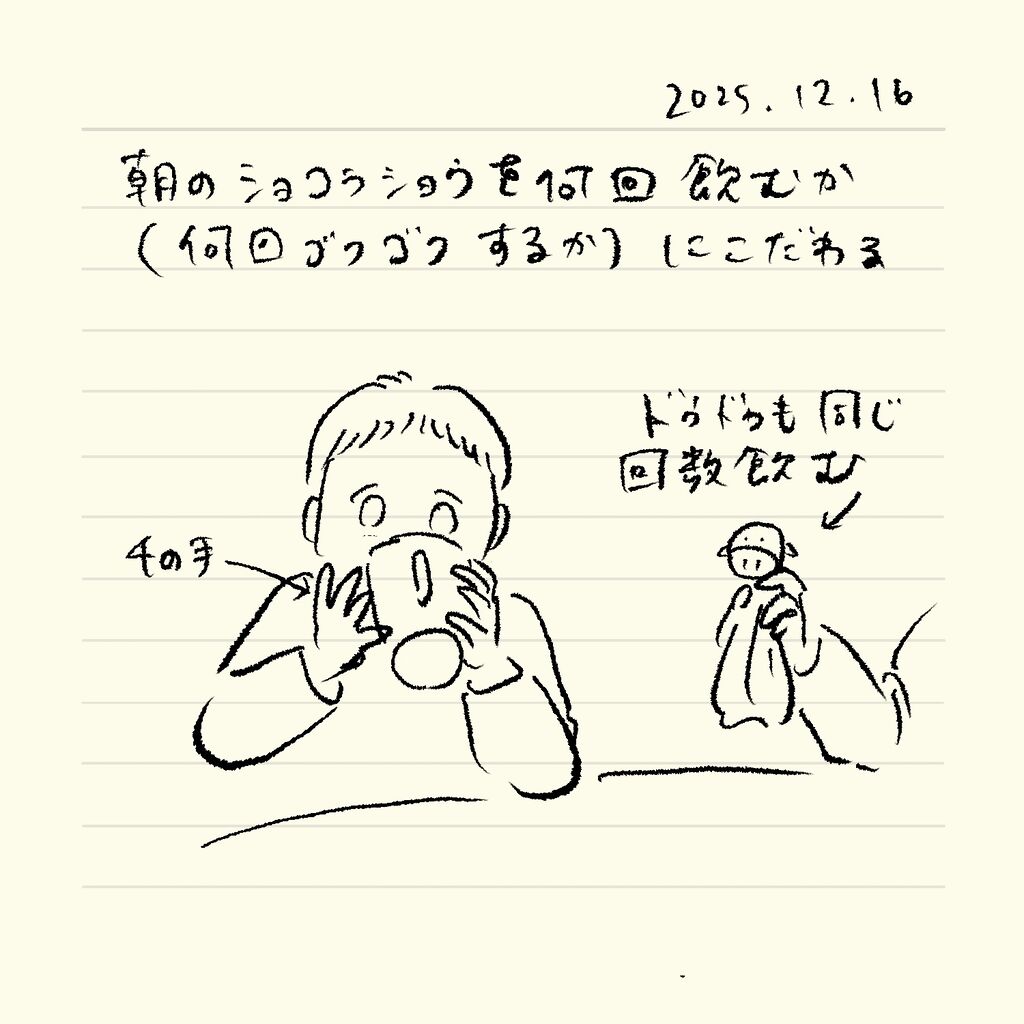 2025.12.16
朝のショコラショウを何回飲むか
(何回ゴクゴクするか)にこだわる
ドゥドゥも同じ
回数飲む
4の手